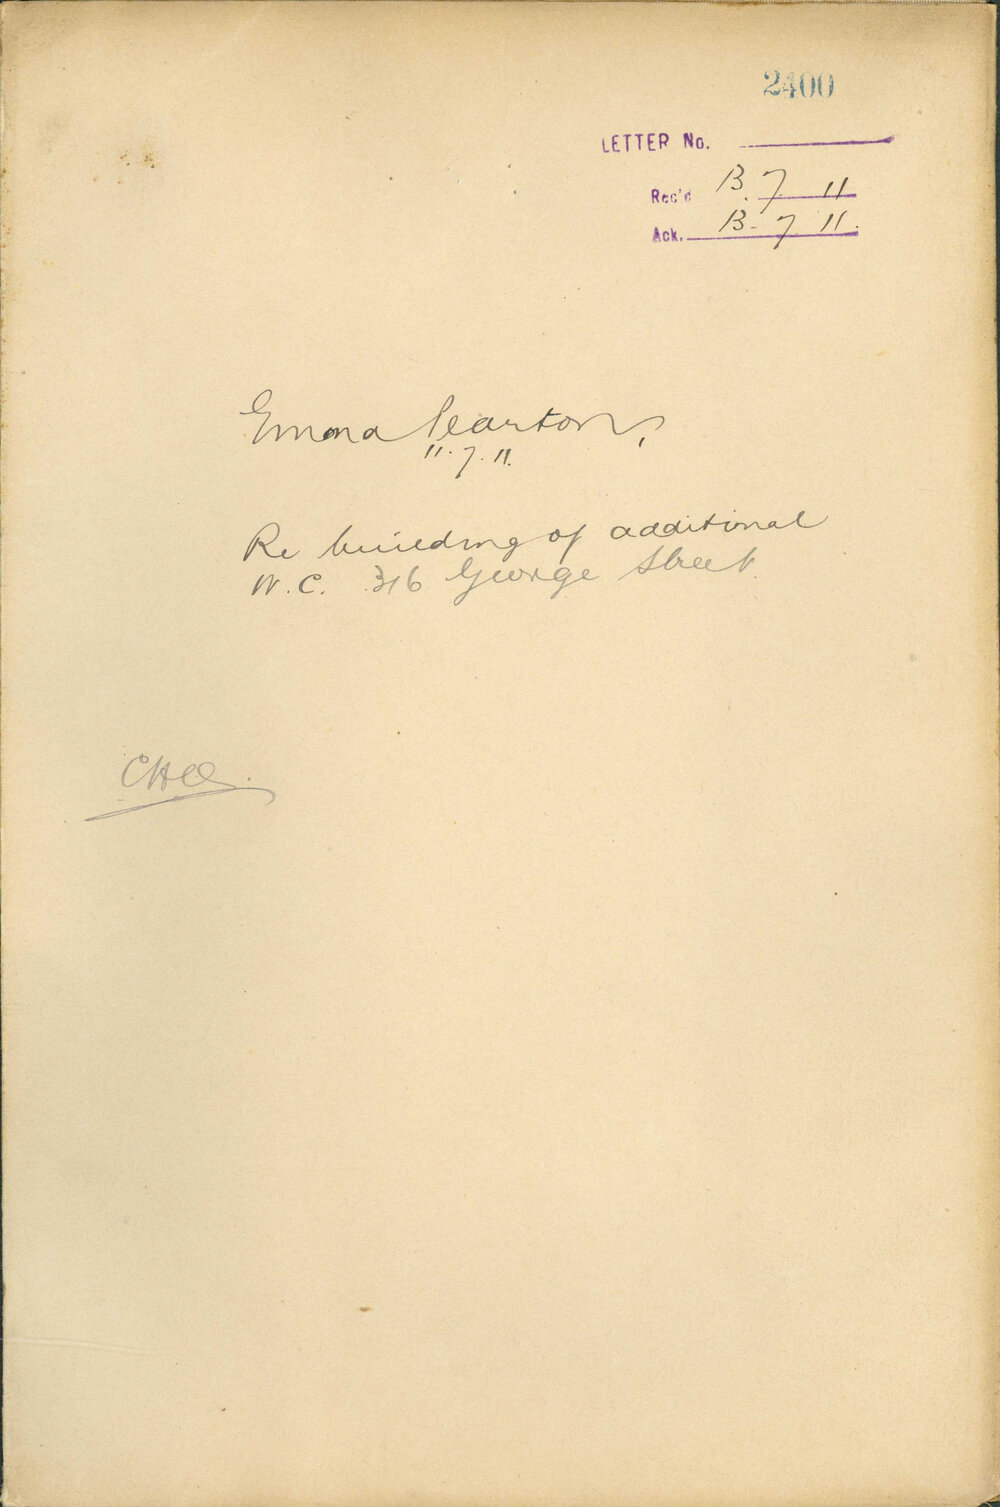 2400
LETTER No.
Rec'd 13. 7 11
Ack. 13. 7 11.
Emma Pearton,
11. 7. 11.
Re building of additional
W.C. 316 George Street